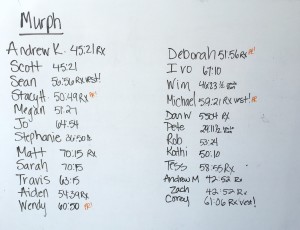 Murph
Andrew K. 45:21 Rx
Scott 45:21
Sean 56:56 Rx vest!
Stacy H. 50:49 Rx PR!
Megan 51:27
Jo 64:54
Stephanie
Matt 70:15 Rx
Sarah 70:15
Travis 63:15
Aiden 54:39 Rx
Wendy 60:50 PR!
Deborah 51:56 Rx PR!
Ivo 67:10
Wim
Michael 59:21 Rx vest! PR
Dan W 55:04 Rx
Pete
Rob 53:24
Kathi 50:10
Tess 58:55 Rx
Andrew M 42:52 Rx
Zach 42:52 Rx
Corey 61:06 Rx vest!